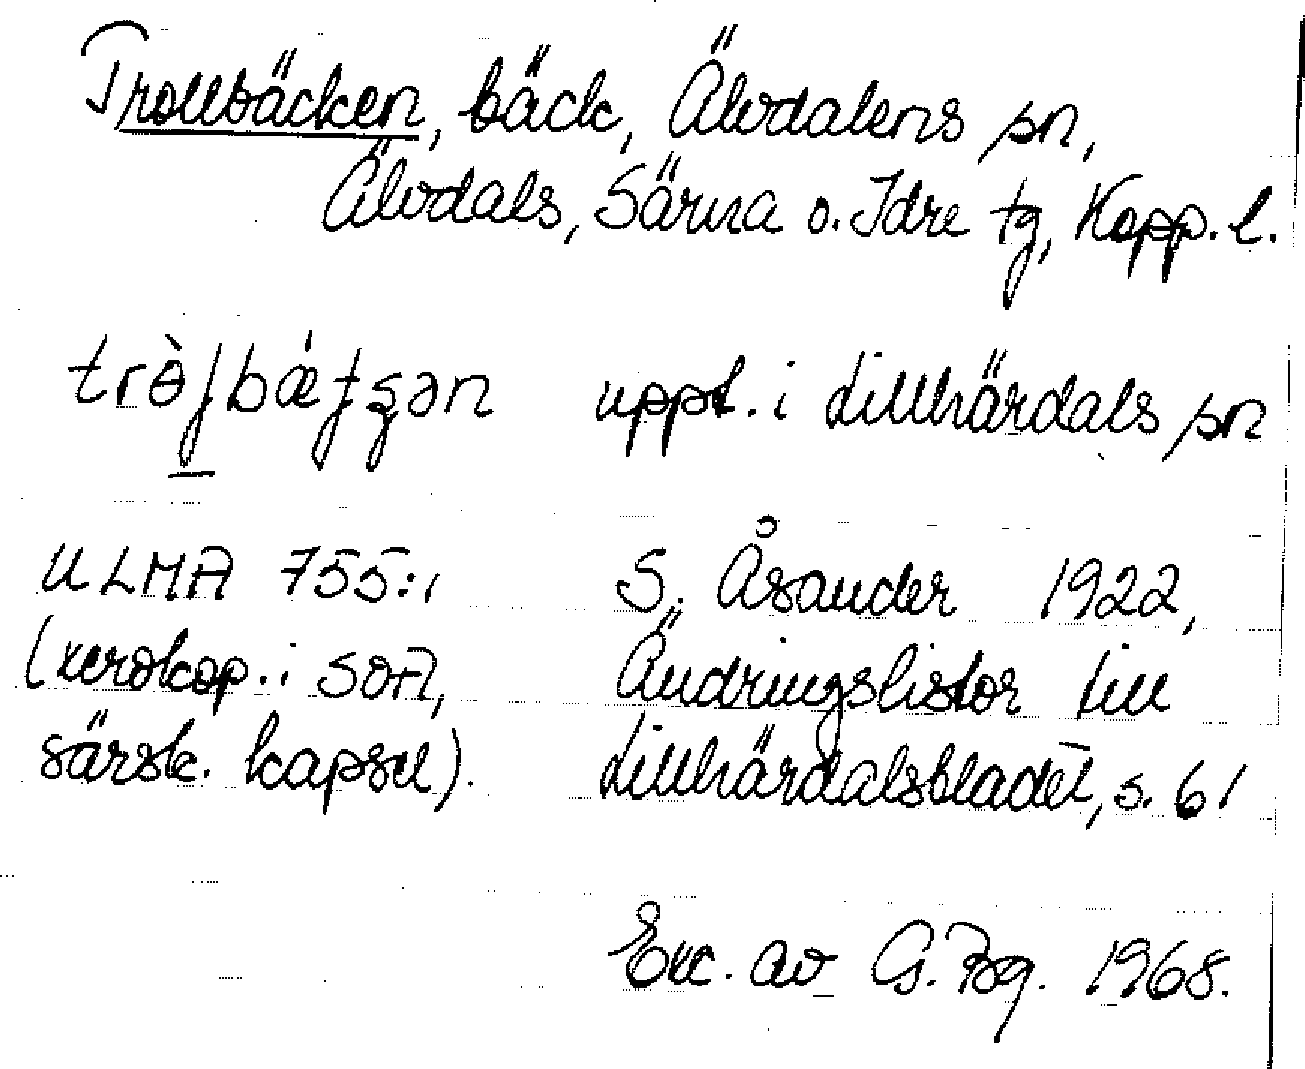 Trollbäcken, bäck, Älvdalens sn,
Älvdals, Särna o. Idre tg, Kopp. l.
uppt. i Lillhärdals sn
ULMA 755:1 S. Åsander 1922,
(xerokop. i SOA, Ändringslistor till
särsk. kapsel). Lillhärdalsbladet, s. 61
Exc. av G. Bg. 1968.